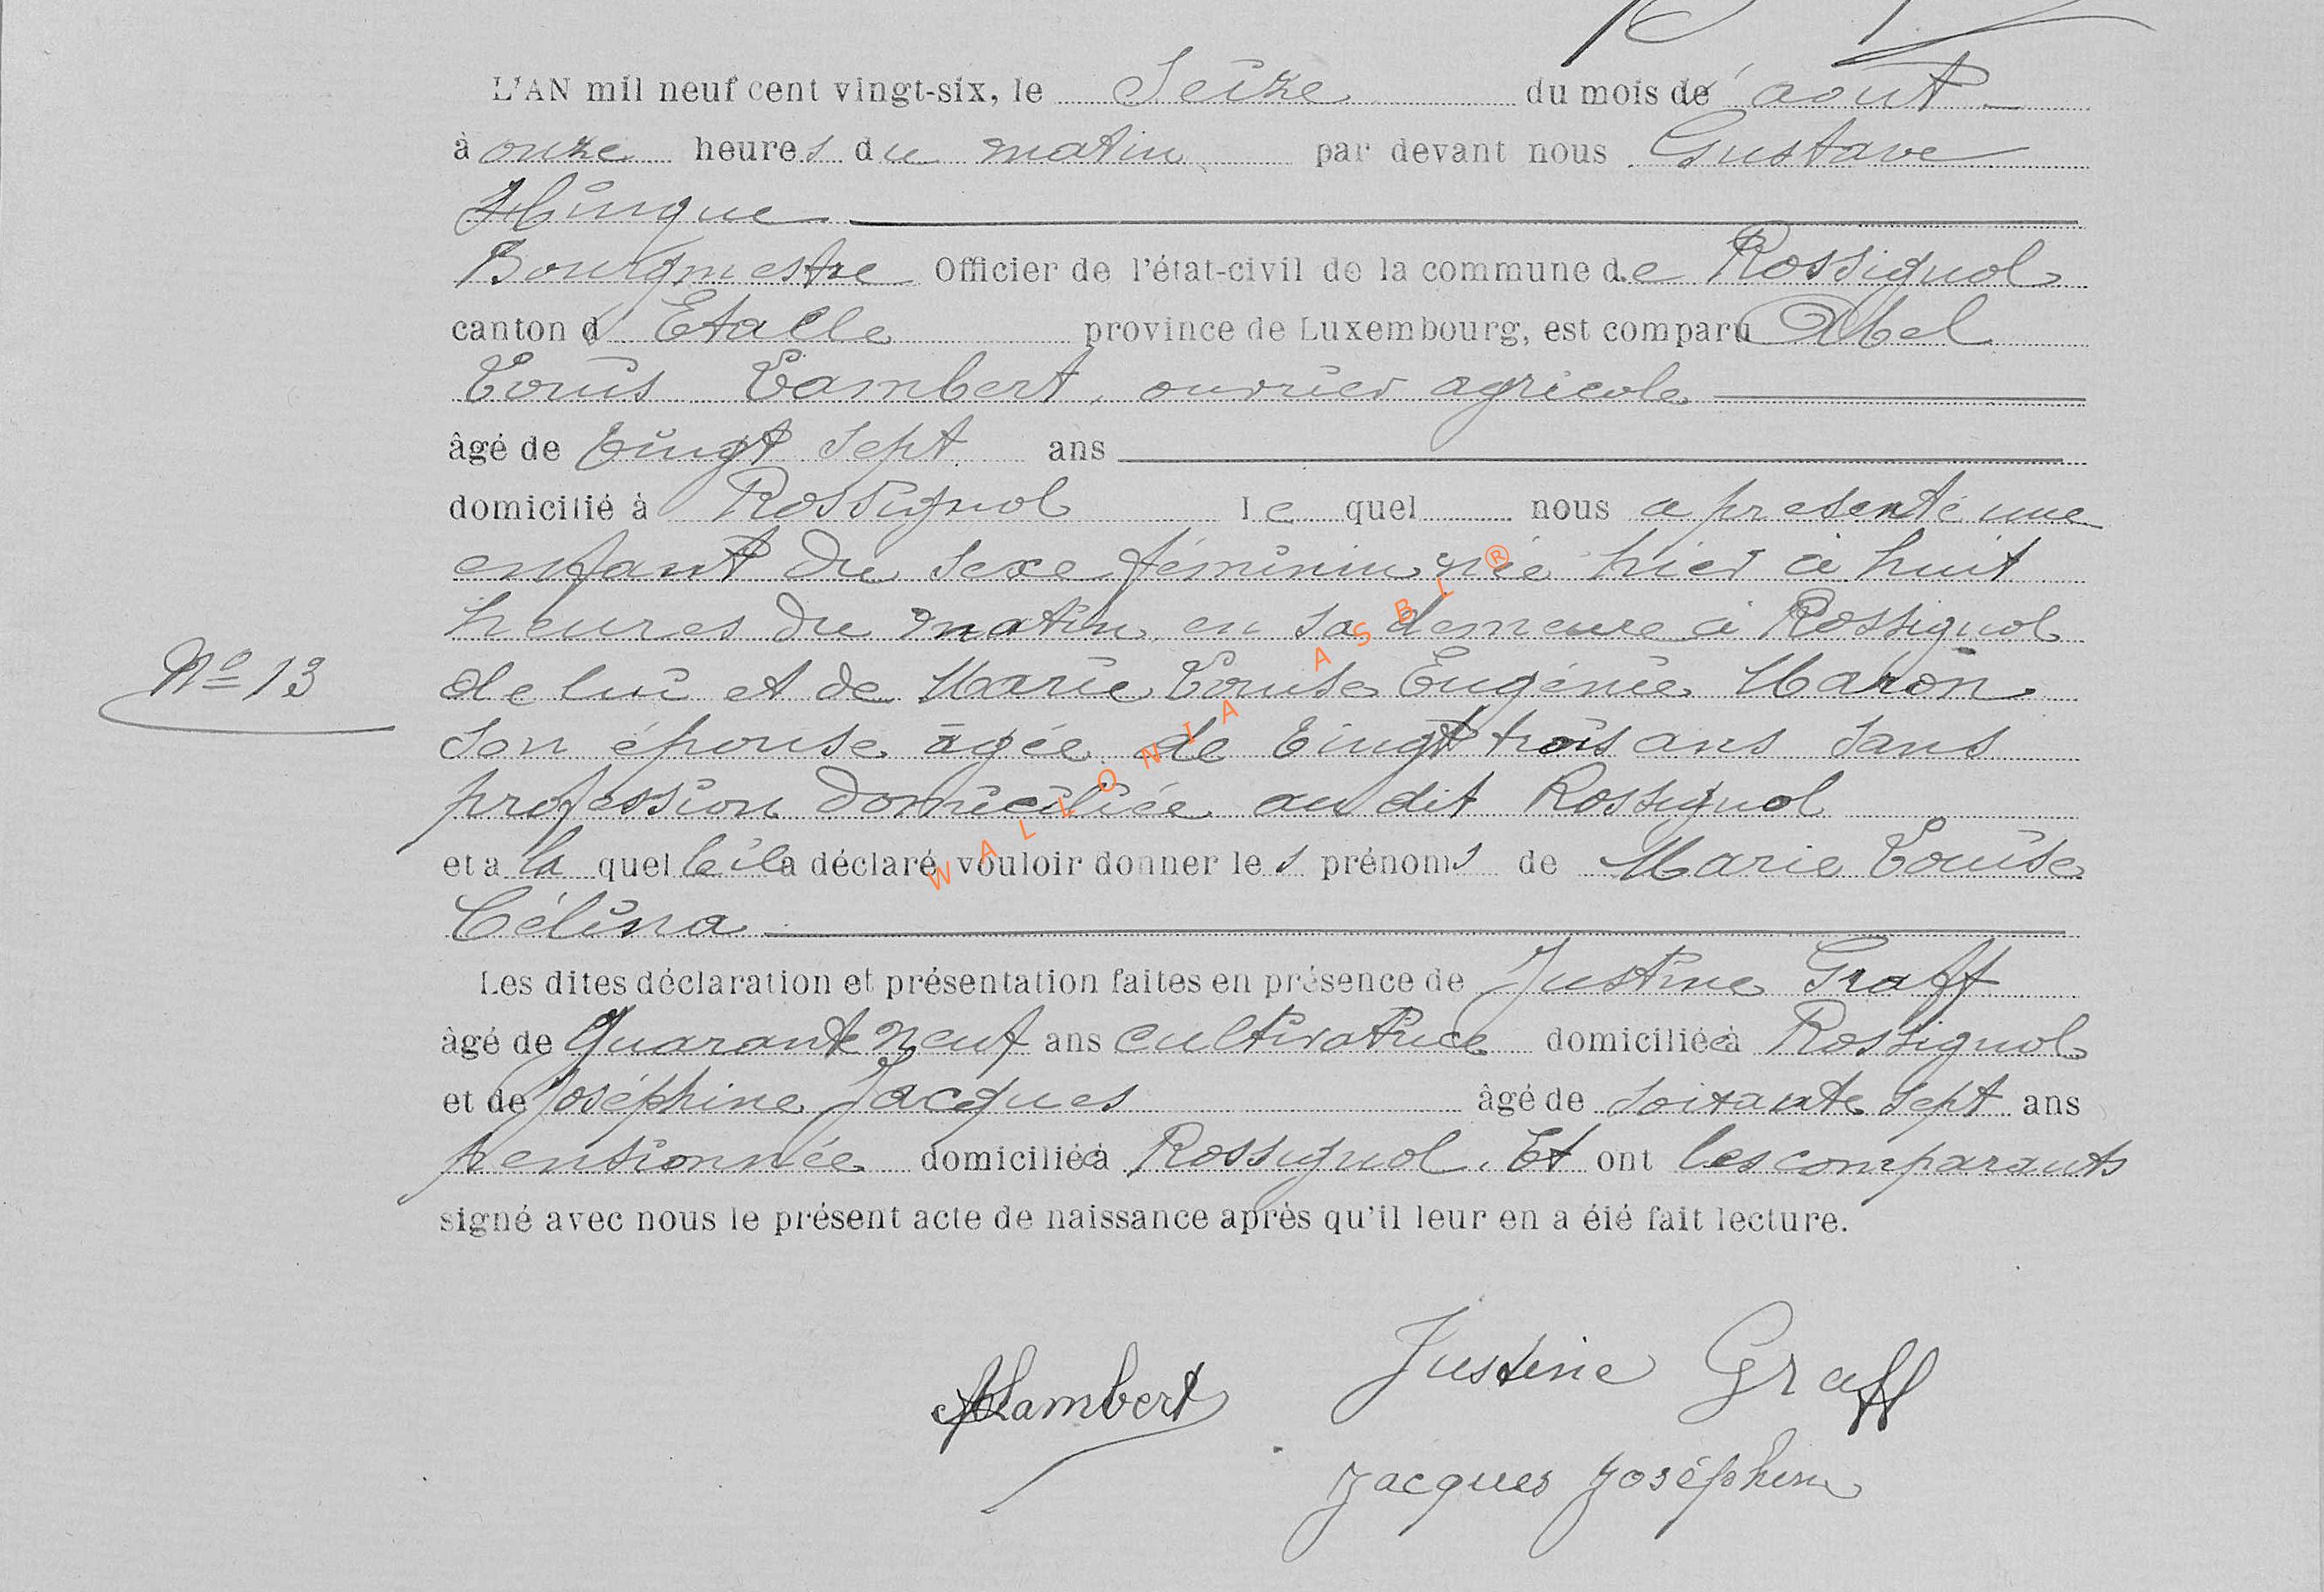 L'AN mil neuf cent vingt-six, le Seize du mois d'août
à onze heures du matin par devant nous Gustave
Hinque
Bourgmestre Officier de l'état-civil de la commune de Rossignol
canton d'Etalle province de Luxembourg, est comparu Abel
Louis Lambert, ouvrier agricole
âgé de vingt sept ans
domicilié à Rossignol le quel nous a présenté une
enfant du sexe féminin née hier à huit
heures du matin, en sa demeure à Rossignol
N° 13
de lui et de Marie Louise Eugénie Maron
son épouse âgée de vingt trois ans sans
profession domiciliée au dit Rossignol
et a la quelle il a déclaré vouloir donner les prénoms de Marie Louise
Célina
Les dites déclaration et présentation faites en présence de Justine Graff
âgé de quarante neuf ans cultivatrice domiciliée à Rossignol
et de Joséphine Jacques âgé de soixante sept ans
pensionnée domiciliée à Rossignol. Et ont les comparants
signé avec nous le présent acte de naissance après qu'il leur en a été fait lecture.
ALambert
Justine Graff
Jacques Joséphine
WALLONIA ASBL ®